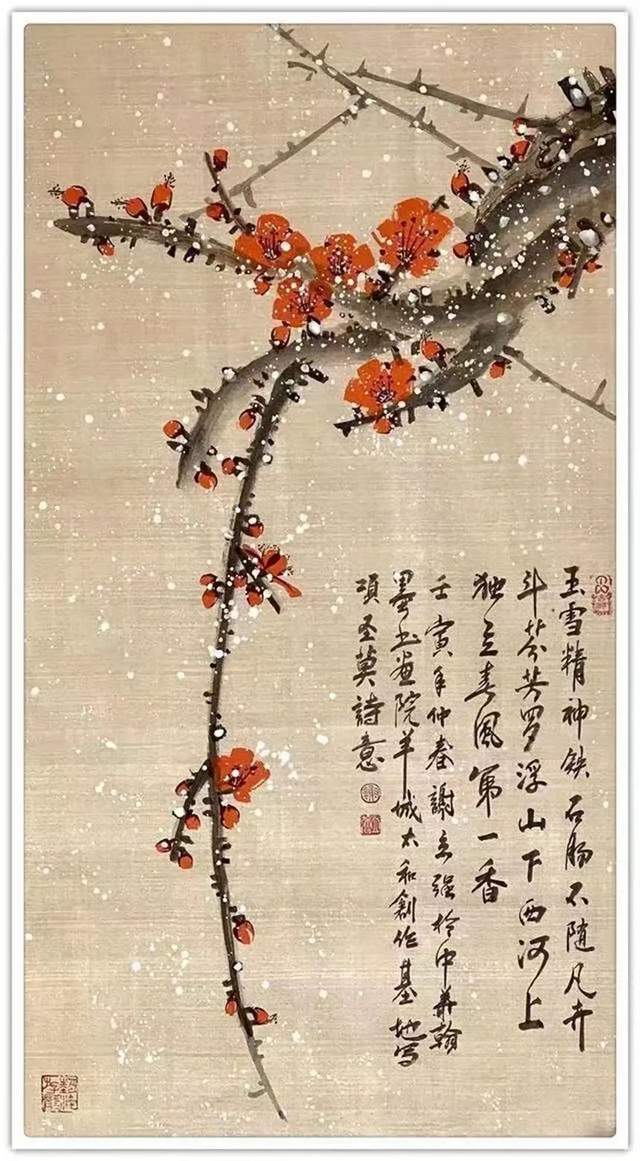 玉雪精神铁石肠不随凡卉
斗芬芳罗浮山下西河上
独立春風第一香
壬寅年仲春謝立强於中華翰
墨书画院羊城太和創作基地写
項圣莫詩意